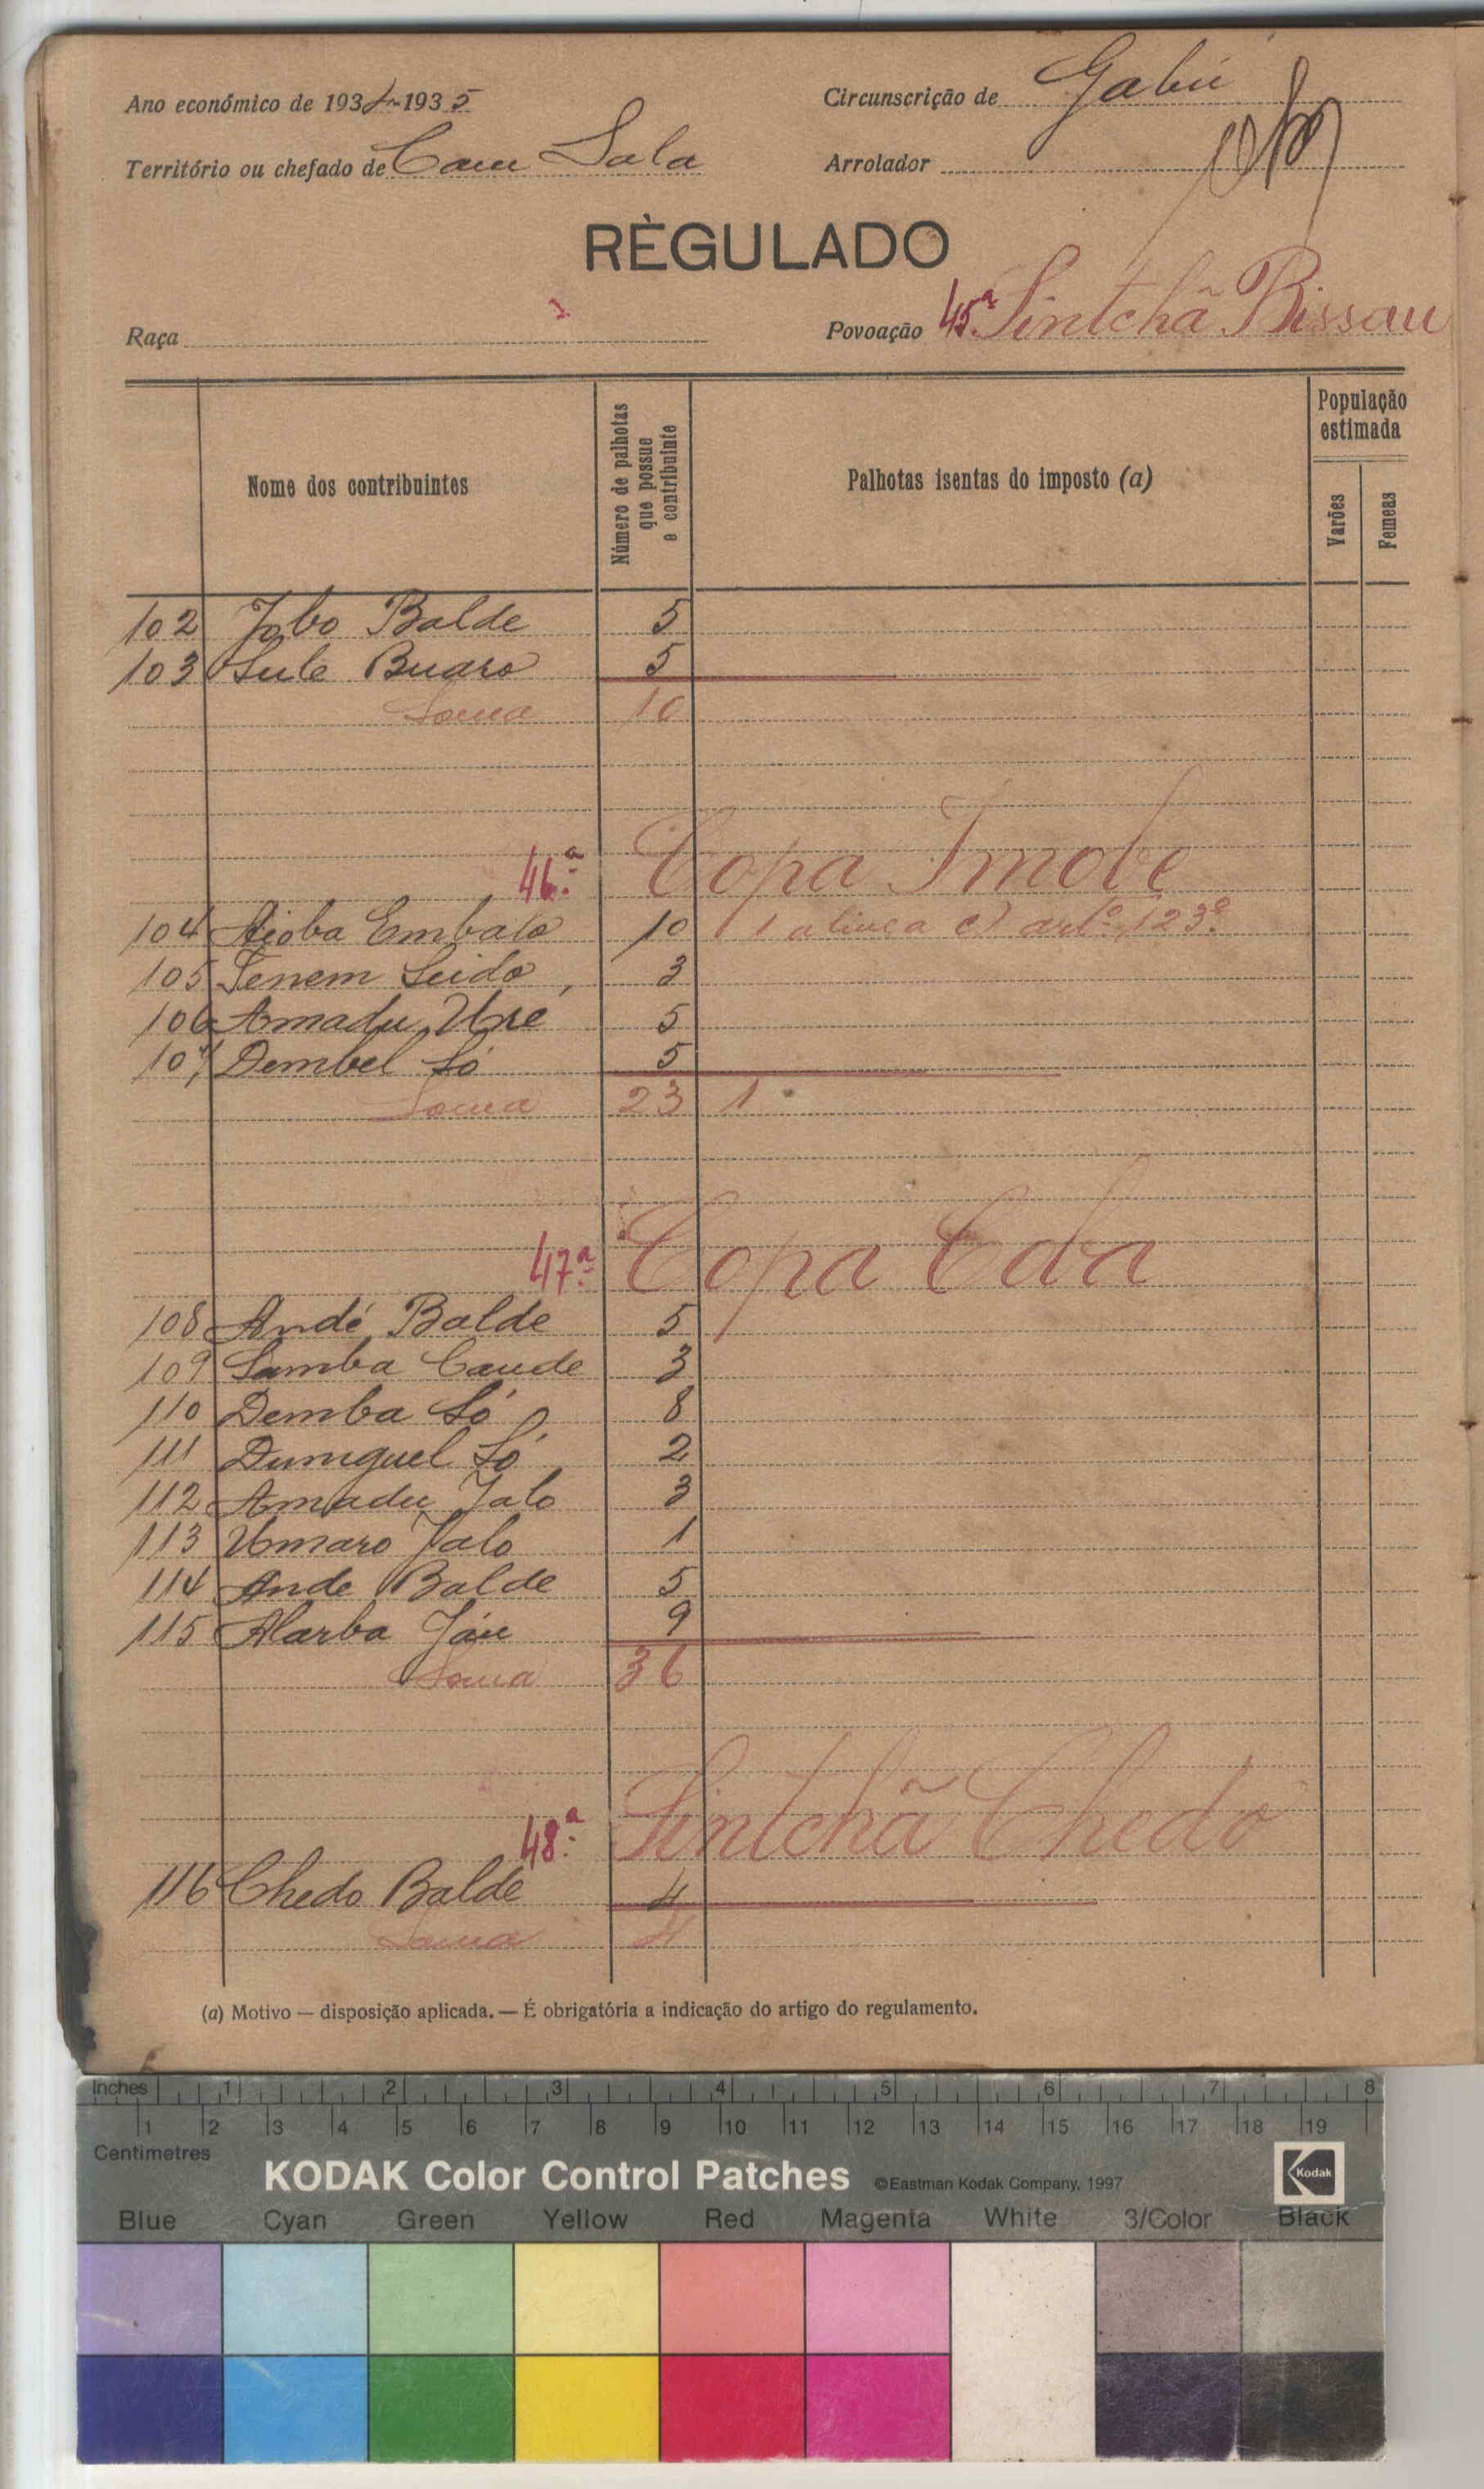 Ano económico de 1934-1935
Circunscrição de Gabú
Território ou chefado de Cam Sala
Arrolador
RÈGULADO
Raça
Povoação 45ª Sintchã Bissau
Nome dos contribuintes
Número de palhotas que possue o contribuinte
Palhotas isentas do imposto (a)
População estimada
Varões
Femeas
102 Jobo Balde 5
103 Sule Buaro 5
Soma 10
46ª Copa Imobe
104 Aioba Embalo 10 1 alinea c) artº 123º
105 Tenem Seido 3
106 Amadu Uré 5
107 Dembel Só 5
Soma 23 1
47ª Copa Cda
108 Andé Balde 5
109 Samba Cande 3
110 Demba Só 8
111 Dumguel Só 2
112 Amadu Jalo 3
113 Umaro Jalo 1
114 Ande Balde 5
115 Alarba Jáu 9
Soma 36
48ª Sintchã Chedo
116 Chedo Balde 4
Soma 4
(a) Motivo — disposição aplicada. — É obrigatória a indicação do artigo do regulamento.
Inches 1 2 3 4 5 6 7 8
1 2 3 4 5 6 7 8 9 10 11 12 13 14 15 16 17 18 19
Centimetres
KODAK Color Control Patches ©Eastman Kodak Company, 1997 Kodak
Blue Cyan Green Yellow Red Magenta White 3/Color Black